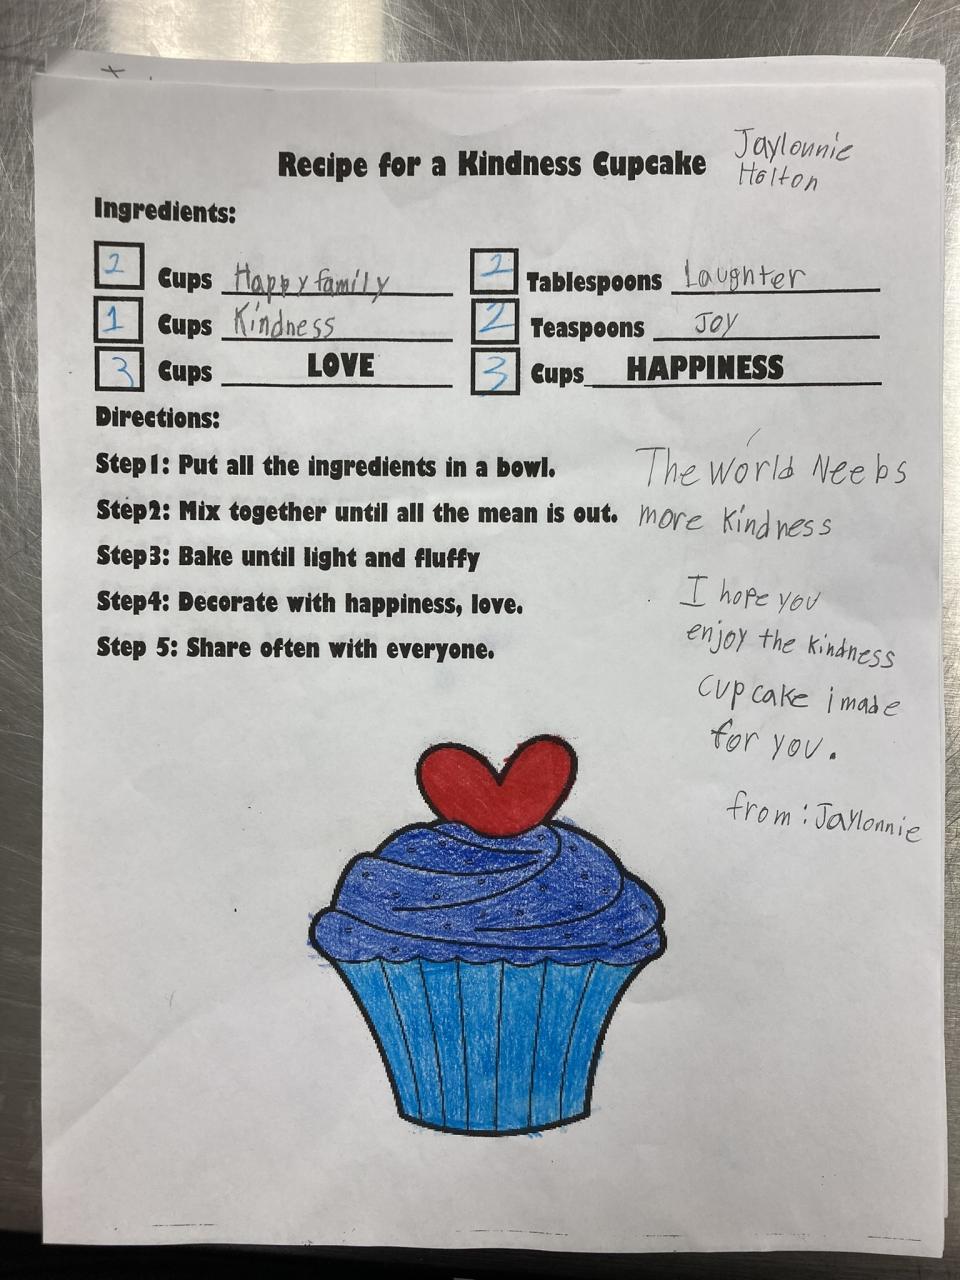 Recipe for a Kindness Cupcake
Jaylonnie
Holton
Ingredients:
2 Cups Happy family
2 Tablespoons Laughter
1 Cups Kindness
2 Teaspoons Joy
3 Cups LOVE
3 Cups HAPPINESS
Directions:
Step1: Put all the ingredients in a bowl.
Step2: Mix together until all the mean is out.
Step3: Bake until light and fluffy
Step4: Decorate with happiness, love.
Step 5: Share often with everyone.
The world Neebs
more kindness
I hope you
enjoy the kindness
cup cake i made
for you.
from: Jaylonnie